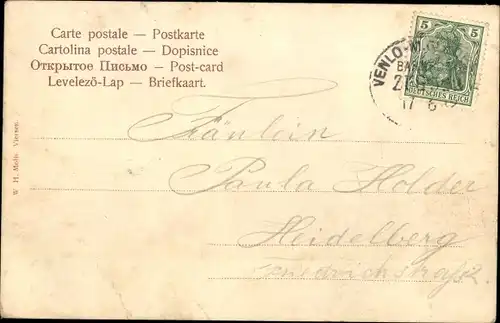 Carte postale — Postkarte
Cartolina postale — Dopisnice
Открытое Письмо — Post-card
Levelező-Lap — Briefkaart.
5 5
DEUTSCHES REICH
VENLO-
17 6
Fräulein
Paula Holder
Heidelberg
Friedrichstraße